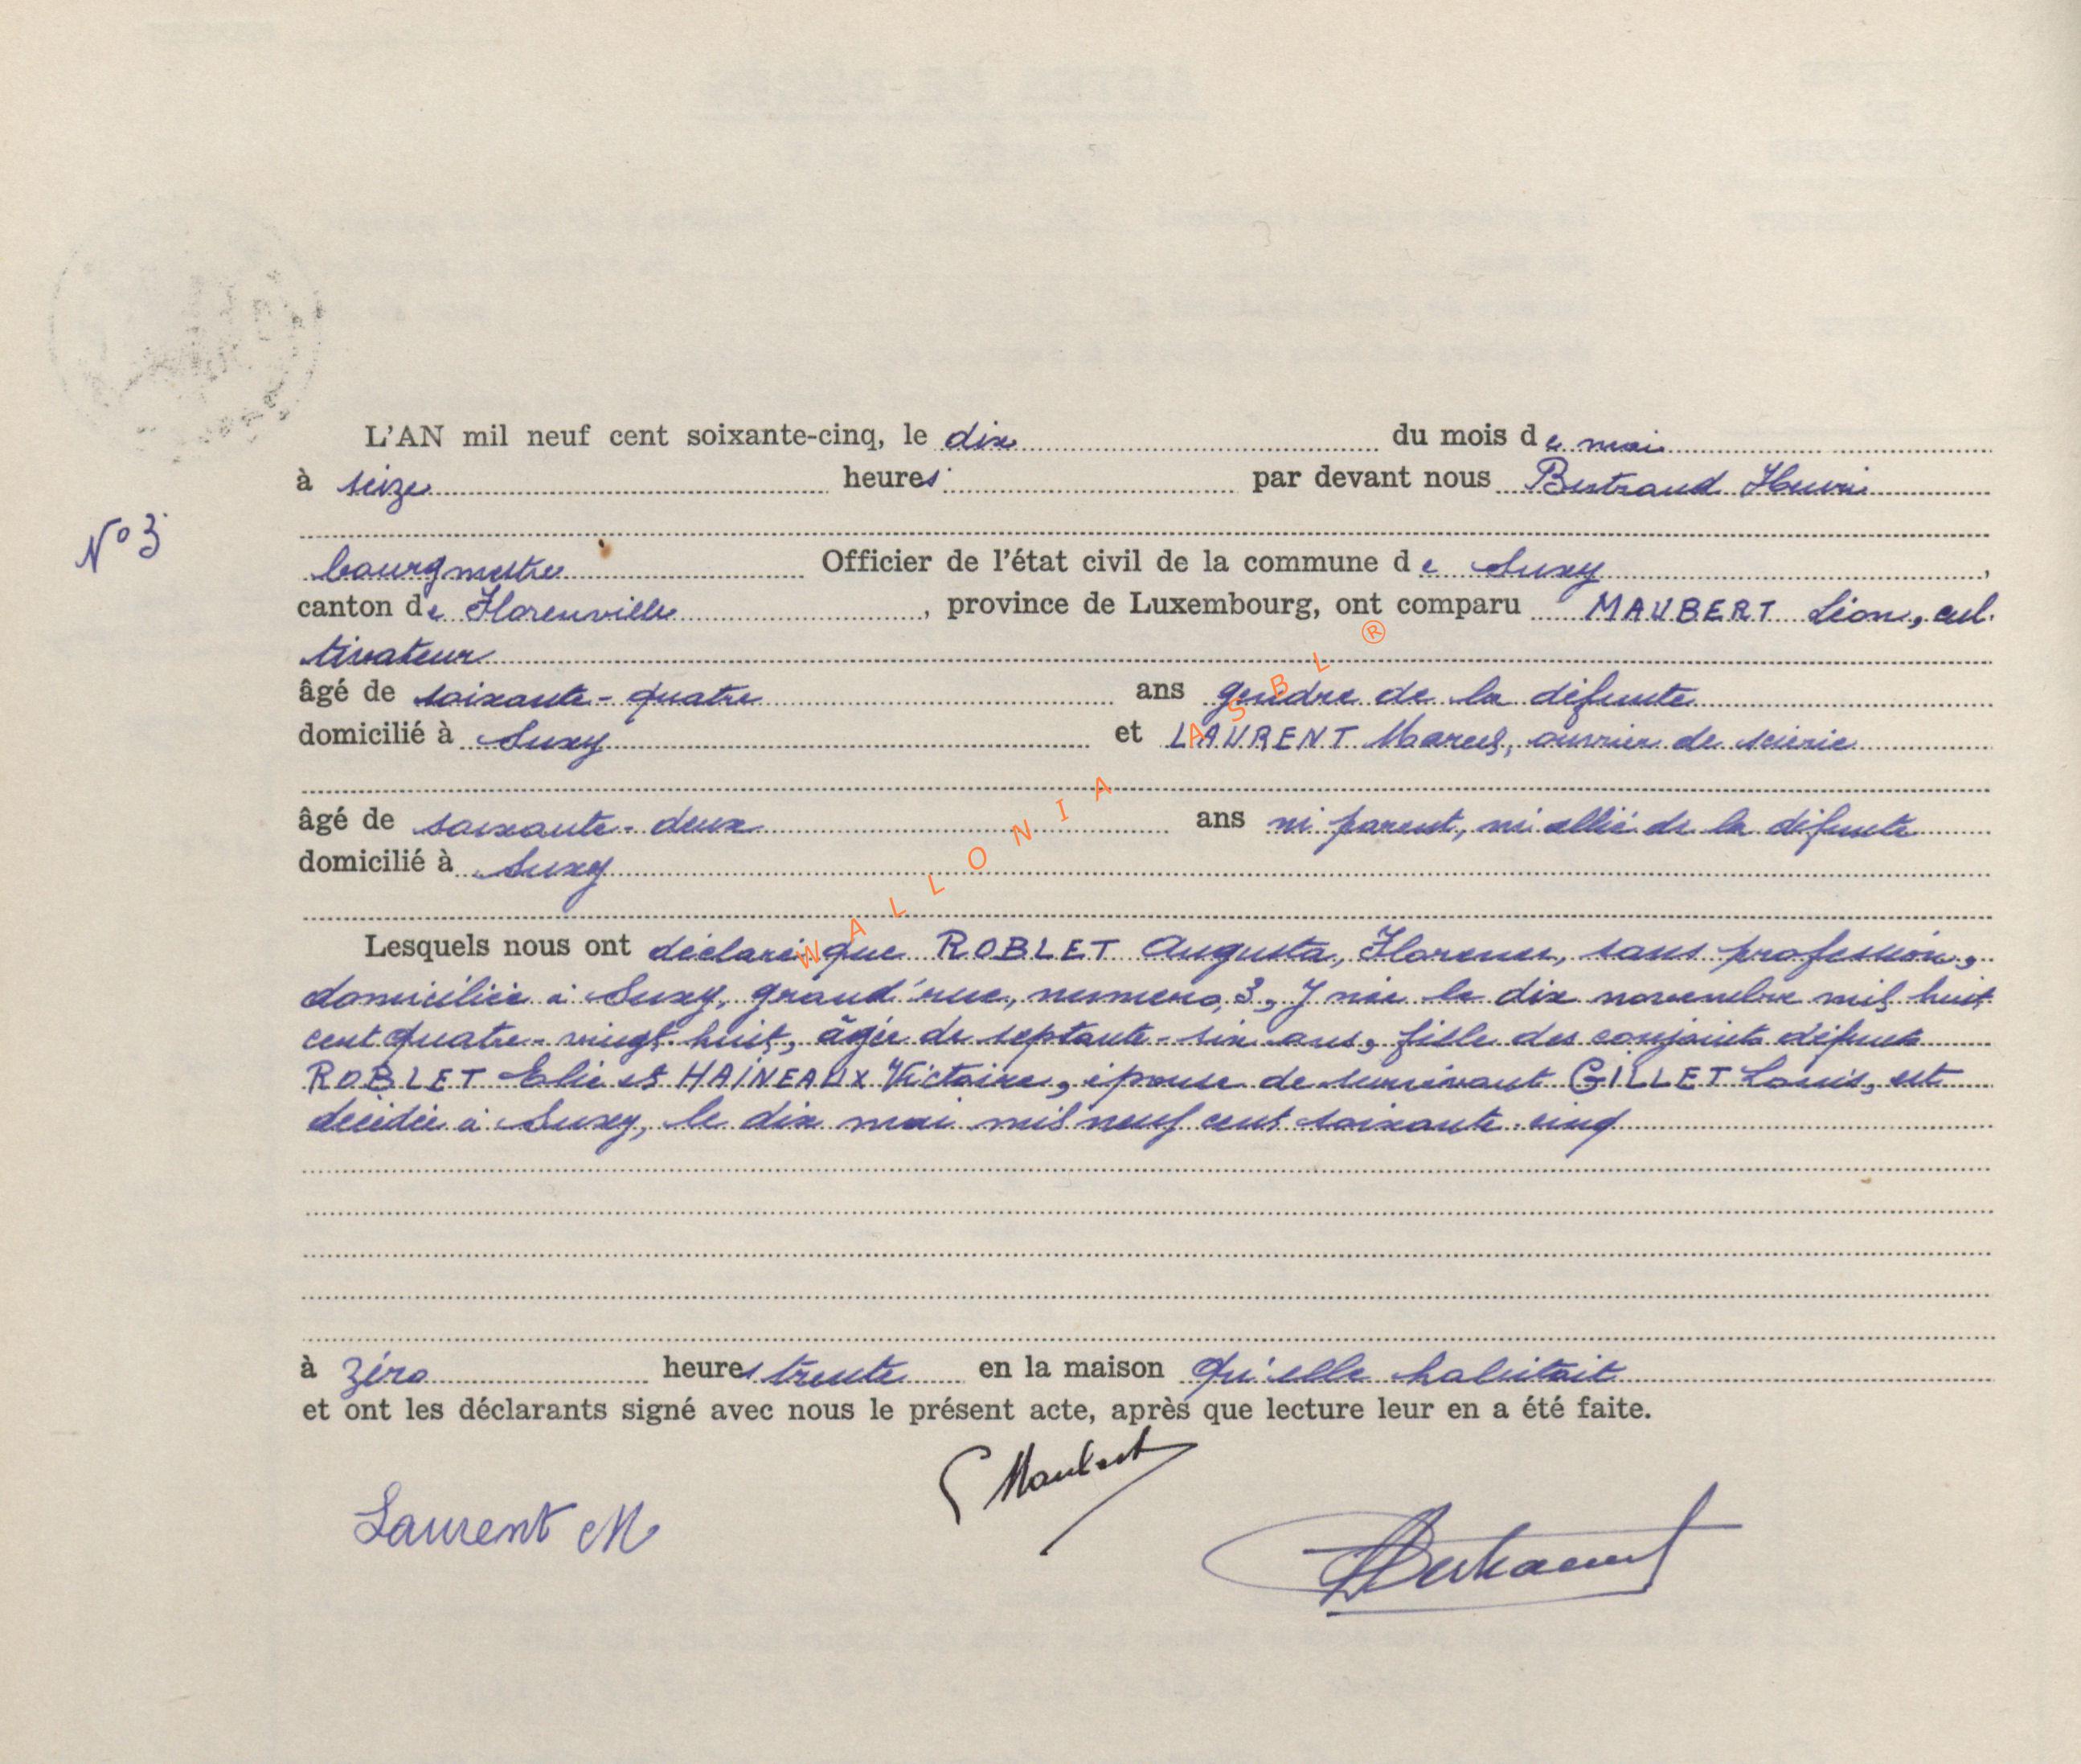 L'AN mil neuf cent soixante-cinq, le dix du mois de mai
à seize heures par devant nous Bertrand Henri
N° 3
bourgmestre Officier de l'état civil de la commune de Suxy,
canton de Florenville, province de Luxembourg, ont comparu MAUBERT Léon, cul-
tivateur
âgé de soixante-quatre ans gendre de la défunte
domicilié à Suxy et LAURENT Marcel, ouvrier de scierie
âgé de soixante-deux ans ni parent, ni allié de la défunte
domicilié à Suxy
Lesquels nous ont déclaré que ROBLET Augusta, Florence, sans profession,
domiciliée à Suxy, grand'rue, numéro, 3, y née le dix novembre mil huit
cent quatre-vingt-huit, âgée de septante-six ans, fille des conjoints défunts
ROBLET Elie et HAINEAUX Victoire, épouse de survivant GILLET Louis, est
décédée à Suxy, le dix mai mil neuf cent soixante-cinq
à zéro heures trente en la maison qu'elle habitait
et ont les déclarants signé avec nous le présent acte, après que lecture leur en a été faite.
Maubert
Laurent M
HBertrand
WALLONIA ASBL ®